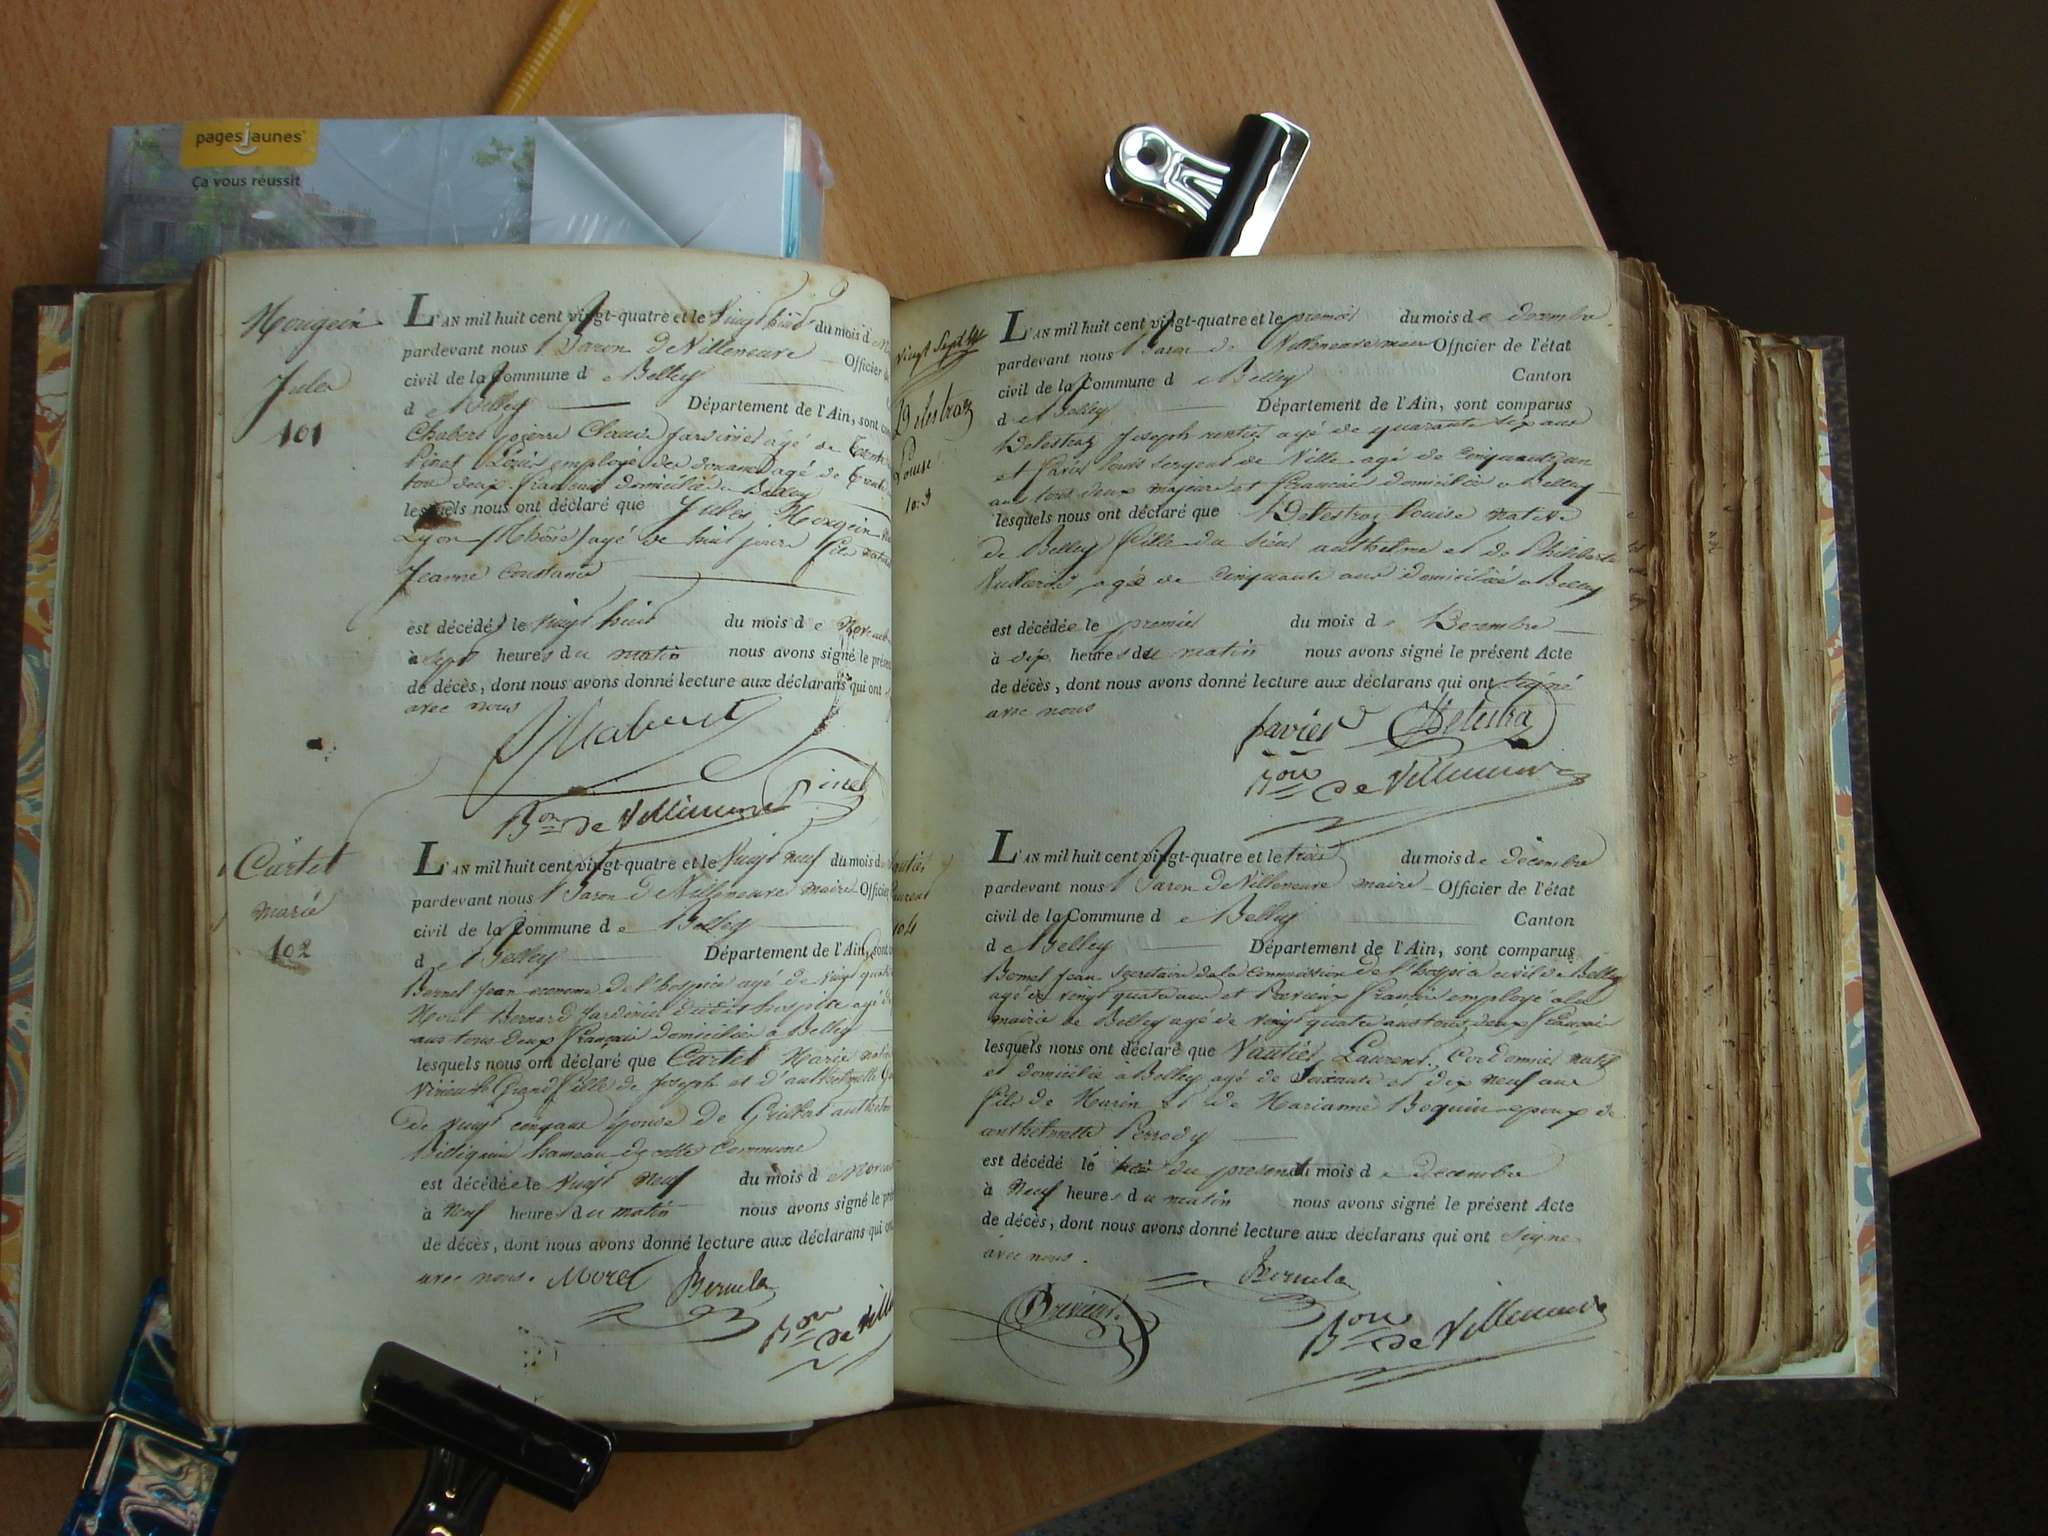 pagesjaunes
Ça vous réussit
Mougein
Jules
101
L'AN mil huit cent vingt-quatre et le Vingt huit du mois d
pardevant nous Baron De Villeneuve Officier de
civil de la Commune d e Belley
d e Belley Département de l'Ain, sont
Chabert pierre Claude Jardinier agé de Trente
Pinet Louis employé des douanes agé de Trente
tous deux francais domiciliés a Belley
lesquels nous ont déclaré que Jules Mougein
Lyon (Rhône) agé de huit jours fils naturel
Jeanne Constance
est décédé le vingt huit du mois d e Novembre
à sept heures du matin nous avons signé le présent
de décès, dont nous avons donné lecture aux déclarans qui ont
avec nous
Chabert
Pinet
Bon de Villeneuve
Cartet
marie
102
L'AN mil huit cent vingt-quatre et le Vingt neuf du mois d
pardevant nous Baron De Villeneuve maire Officier
civil de la Commune d e Belley
d e Belley Département de l'Ain, sont
jean econome de l'hospice agé de vingt quatre
Bernard Jardinier dudit hospice agé de
ans tous deux français domiciliés à Belley
lesquels nous ont déclaré que Cartet Marie
Grand fille de Joseph et d'anthelmette
de vingt cinq ans épouse de
hameau de cette Commune
est décédée le Vingt neuf du mois d e Novembre
à Neuf heures du matin nous avons signé le
de décès, dont nous avons donné lecture aux déclarans qui ont
avec nous. Moret Bernela
Bon de Ville
vingt Sept
Delestraz
Louise
103
L'AN mil huit cent vingt-quatre et le premier du mois d e decembre
pardevant nous Baron de Villeneuve maire Officier de l'état
civil de la Commune d e Belley Canton
d e Belley Département de l'Ain, sont comparus
Delestraz Joseph rentier agé de quarante six ans
et louis sergent de Ville agé de Cinquante un
ans tous deux majeurs et francais domiciliés a Belley
lesquels nous ont déclaré que Delestraz Louise native
de Belley fille du sieur anthelme et de Philiberte
agée de Cinquante ans domiciliée a Belley
est décédée le premier du mois d e Decembre
à dix heures du matin nous avons signé le présent Acte
de décès, dont nous avons donné lecture aux déclarans qui ont signé
avec nous
Delestra
Bon de Villeneuve
Vautier
Laurent
104
L'AN mil huit cent vingt-quatre et le trois du mois d e décembre
pardevant nous Baron De Villeneuve maire Officier de l'état
civil de la Commune d e Belley Canton
d e Belley Département de l'Ain, sont comparus
Jean Secretaire de la Commission de l'hospice civil de Belley
agé de vingt quatre ans et françois employé a la
mairie de Belley agé de vingt quatre ans tous deux francais
lesquels nous ont déclaré que Vautier Laurent, Cordonnier natif
et domicilié à Belley agé de Soixante et dix neuf ans
fils de Marin et de Marianne Boquin epoux de
anthelmette Perrody
est décédé le trois du present du mois d e decembre
à Neuf heures du matin nous avons signé le présent Acte
de décès, dont nous avons donné lecture aux déclarans qui ont signé
avec nous.
Bernela
Bon de Villeneuve